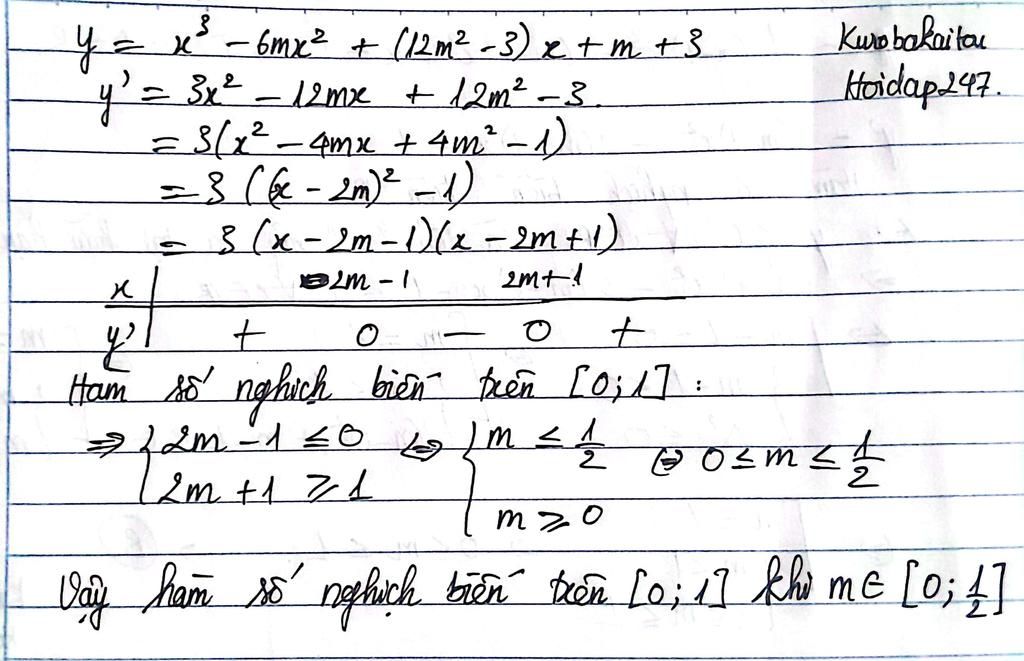 y = x³ - 6mx² + (12m² - 3) x + m + 3
Kurobakaitou
y' = 3x² - 12mx + 12m² - 3.
Hoidap247.
= 3(x² - 4mx + 4m² - 1)
= 3 ((x - 2m)² - 1)
= 3 (x - 2m - 1)(x - 2m + 1)
x | 2m - 1 2m + 1
y' | + 0 - 0 +
Hàm số nghịch biến trên [0; 1] :
=> { 2m - 1 ≤ 0 <=> { m ≤ 1/2 <=> 0 ≤ m ≤ 1/2
2m + 1 ≥ 1 m ≥ 0
Vậy hàm số nghịch biến trên [0; 1] khi m ∈ [0; 1/2]